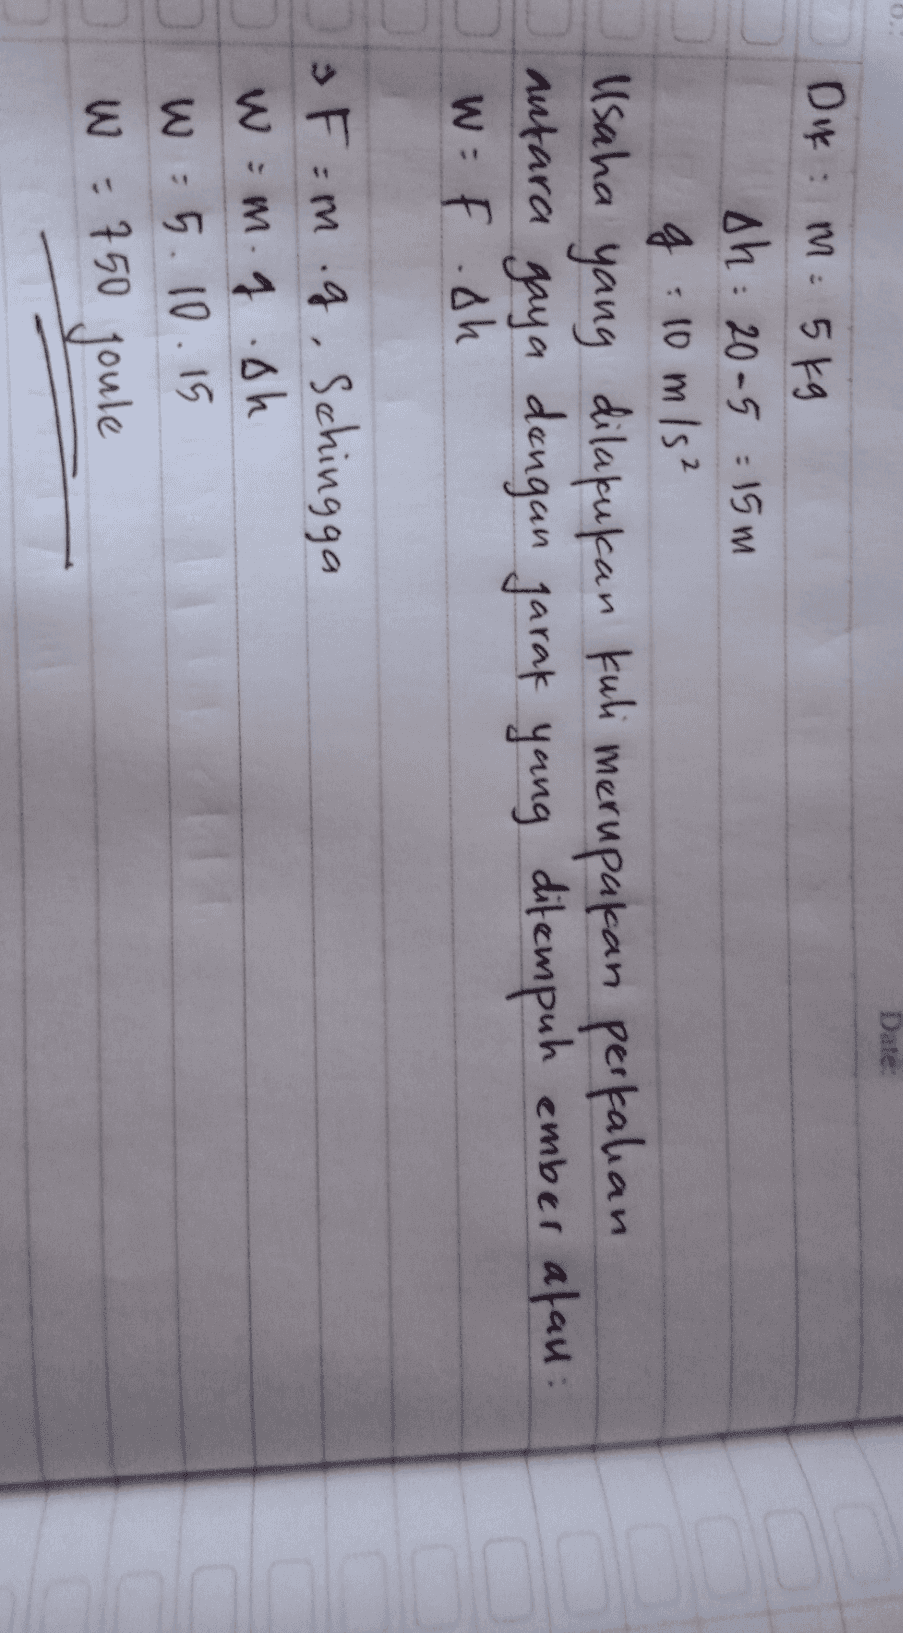 Date:
Dik : m = 5 kg
Δh = 20-5 = 15 m
g = 10 m/s²
Usaha yang dilakukan kuli merupakan perkalian
antara gaya dengan jarak yang ditempuh ember atau :
W = F . Δh
→ F = m . g , Sehingga
W = m . g . Δh
W = 5 . 10 . 15
W = 750 joule